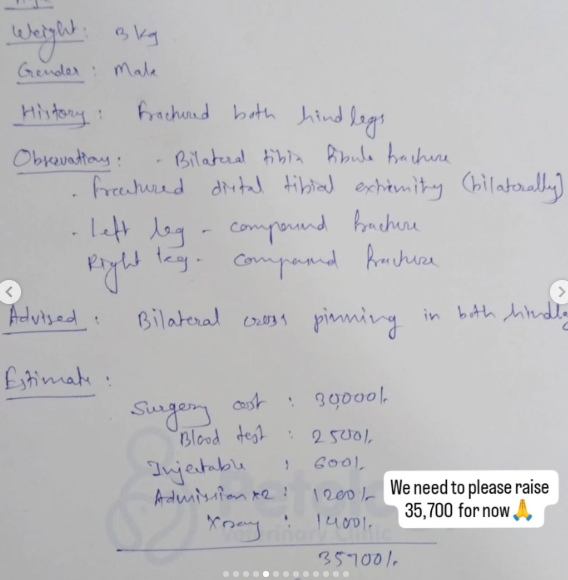 Weight: 3 kg
Gender: Male
History: fractured both hind legs
Observations: - Bilateral tibia fibula fracture
. fractured distal tibial extrimity (bilaterally)
. Left leg - compound fracture
Right leg - compound fracture
Advised: Bilateral cross pinning in both hindleg
Estimate:
Surgery cost : 30,000/-
Blood test : 2500/-
Injectable : 600/-
Admission x2 : 1200/-
Xray : 1400/-
35700/-
We need to please raise
35,700 for now🙏